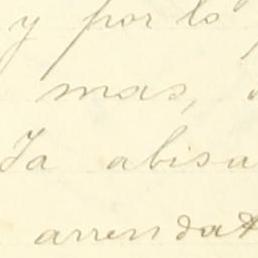 y por lo
mas,
Ya abisa
arrenda